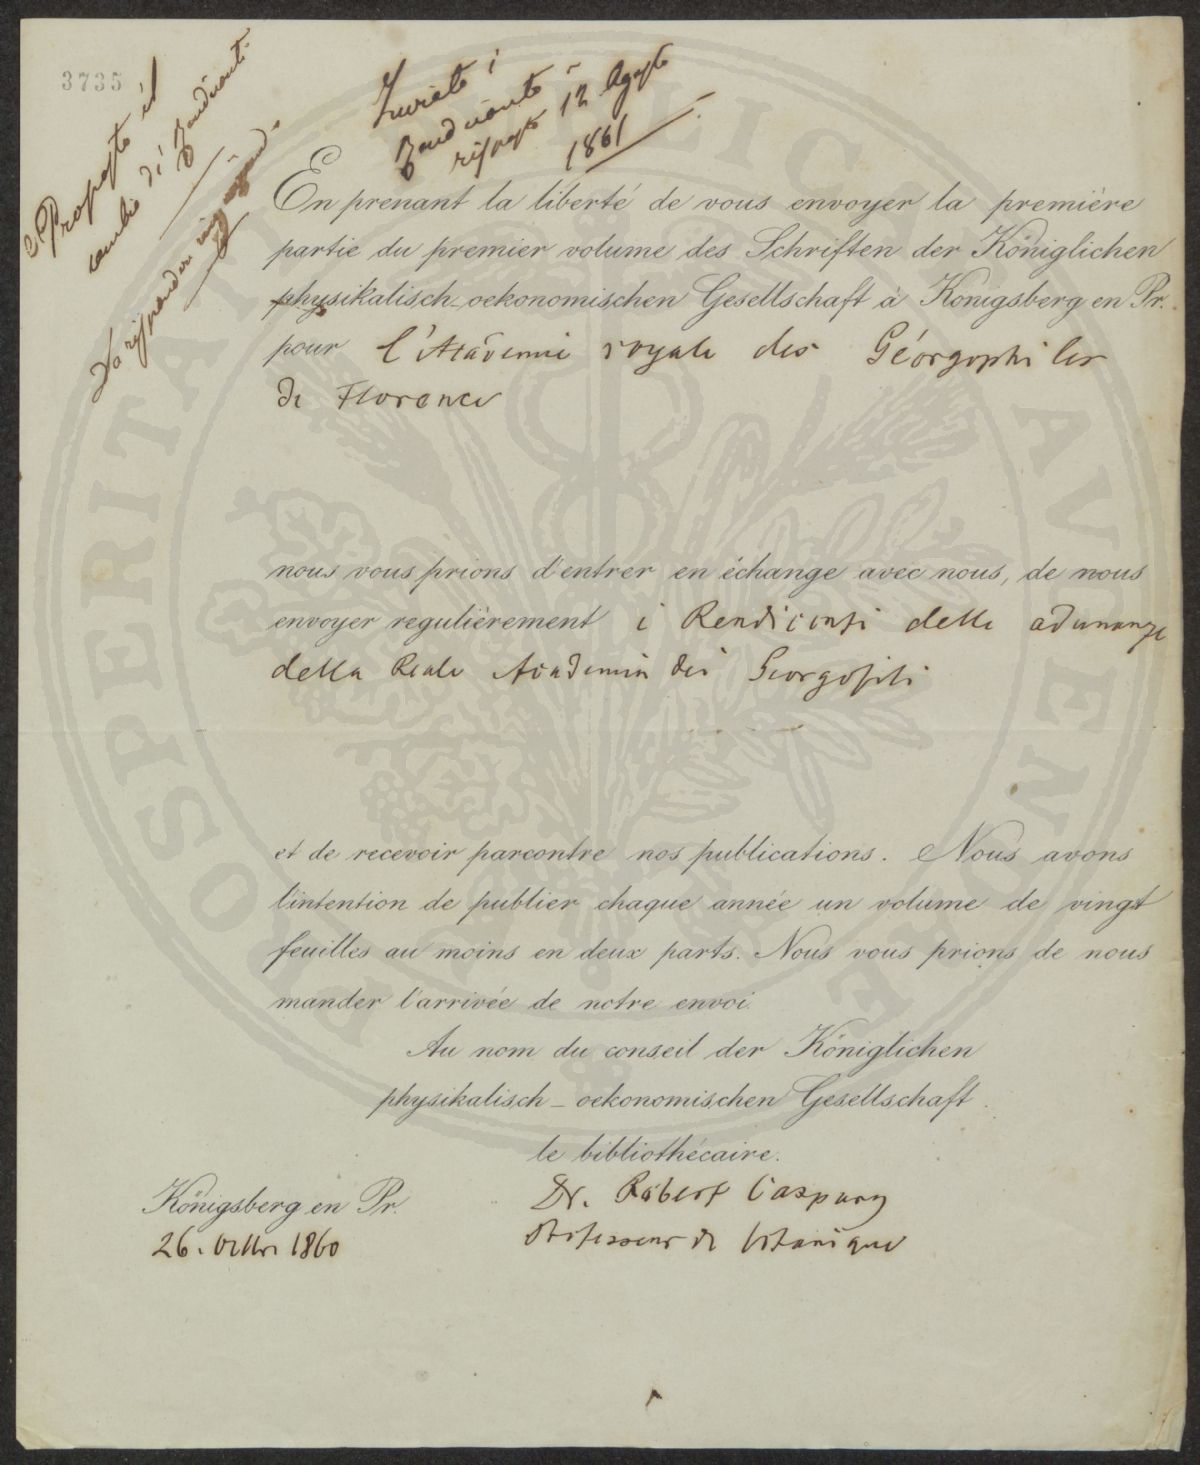 3735
Proposto il
cambio di Rendiconti
Da rispondere
Inviato i
Rendiconti
risposto 12 Agosto
1861
En prenant la liberté de vous envoyer la première
partie du premier volume des Schriften der Königlichen
physikalisch-oekonomischen Gesellschaft à Königsberg en Pr.
pour l'Académie royale des Géorgophiles
de Florence
nous vous prions d'entrer en échange avec nous, de nous
envoyer regulièrement i Rendiconti delle adunanze
della Reale Academia dei Georgofili
et de recevoir parcontre nos publications. Nous avons
l'intention de publier chaque année un volume de vingt
feuilles au moins en deux parts. Nous vous prions de nous
mander l'arrivée de notre envoi.
Au nom du conseil der Königlichen
physikalisch-oekonomischen Gesellschaft
le bibliothécaire.
Dr. Robert Caspary
Professeur de botanique
Königsberg en Pr.
26. Octbr 1860
PROSPERITATI PUBLICAE AUGENDAE